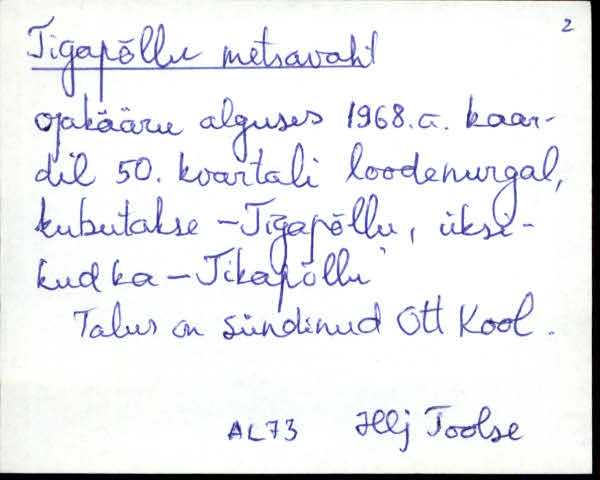 2
Tigapõllu metsavaht
ojakääru alguses 1968.a. kaar-
dil 50. kvartali loodenurgal,
kubutakse – Tigapõllu, üksi-
kud ka – Tikapõllu
Talus on sündinud Ott Kool.
AL73 Illj Toolse